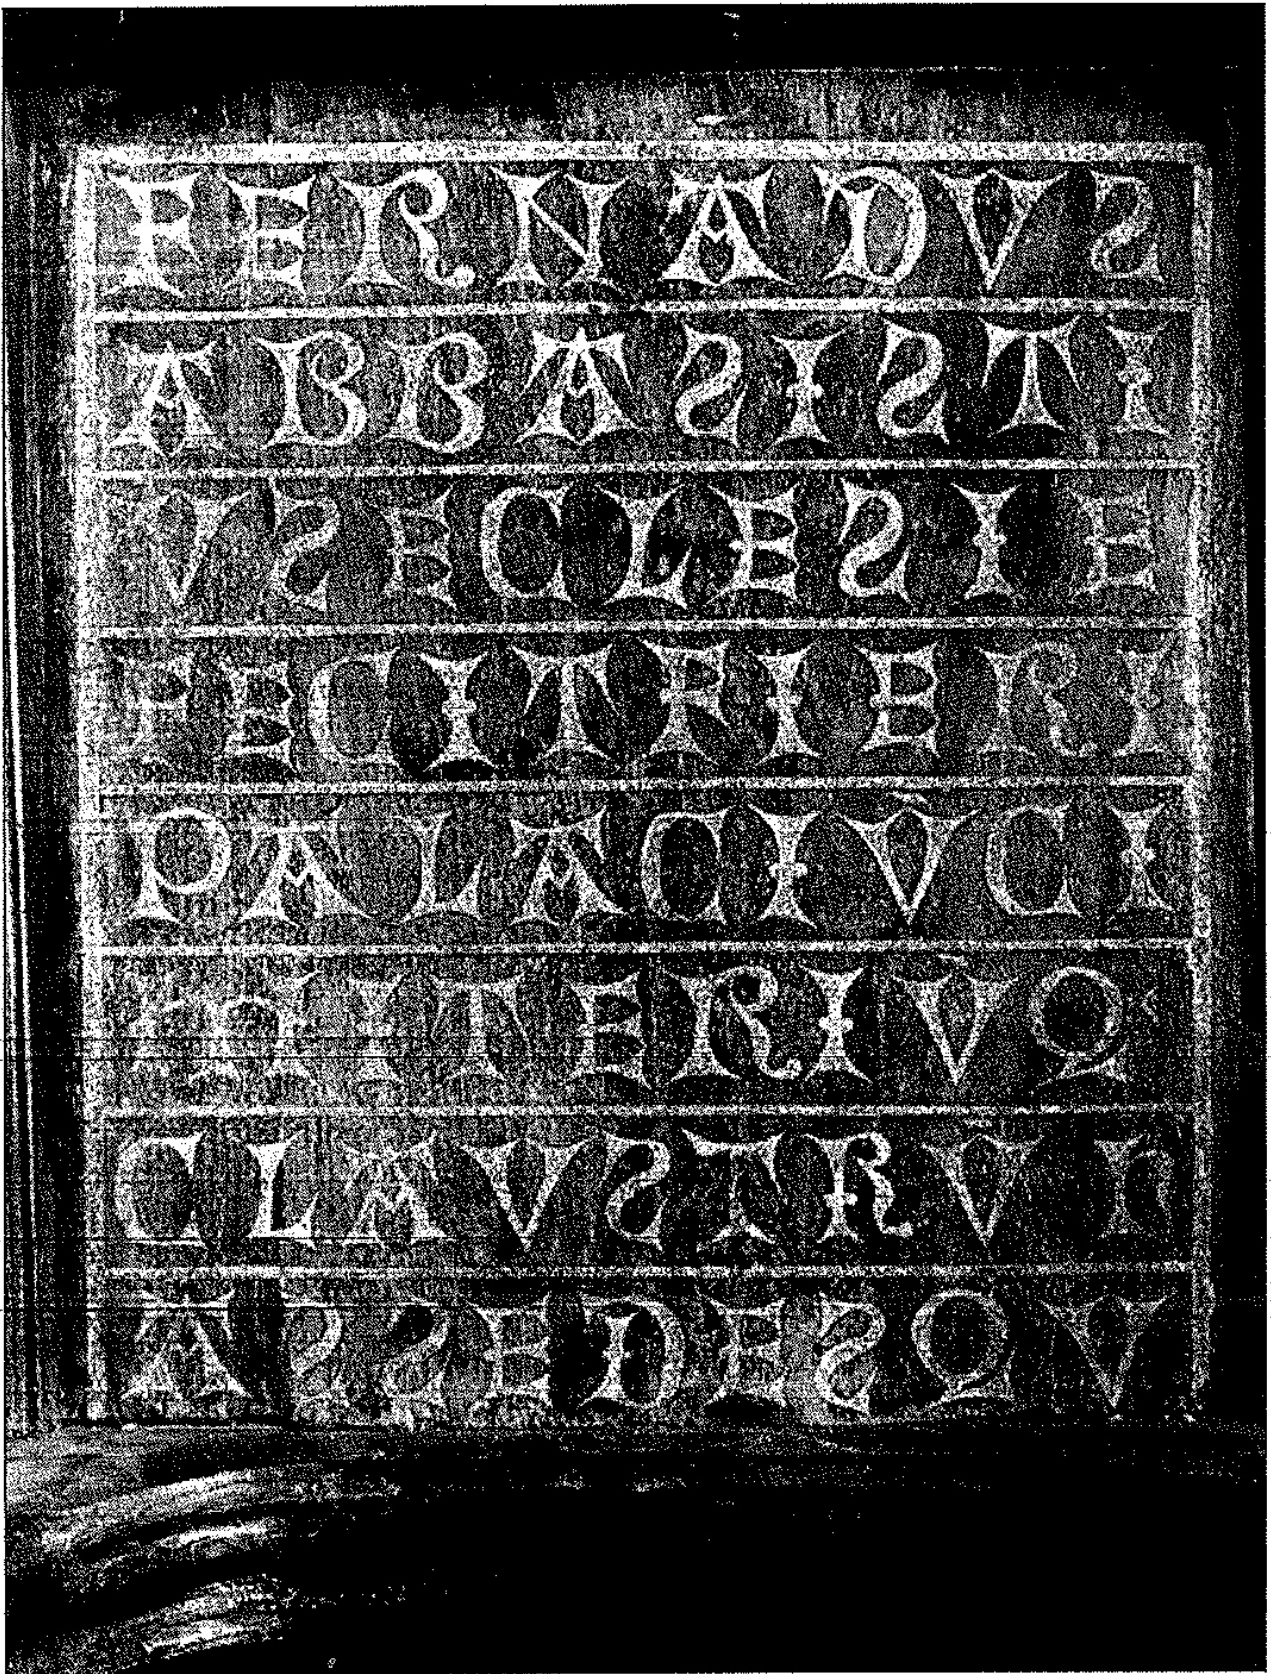 FERNADVS
ABBASISTI
VSECLESIE
FECITFIERI
PALACIVCI
MITERIVQ
CLAVSTRVI
SEDESQV